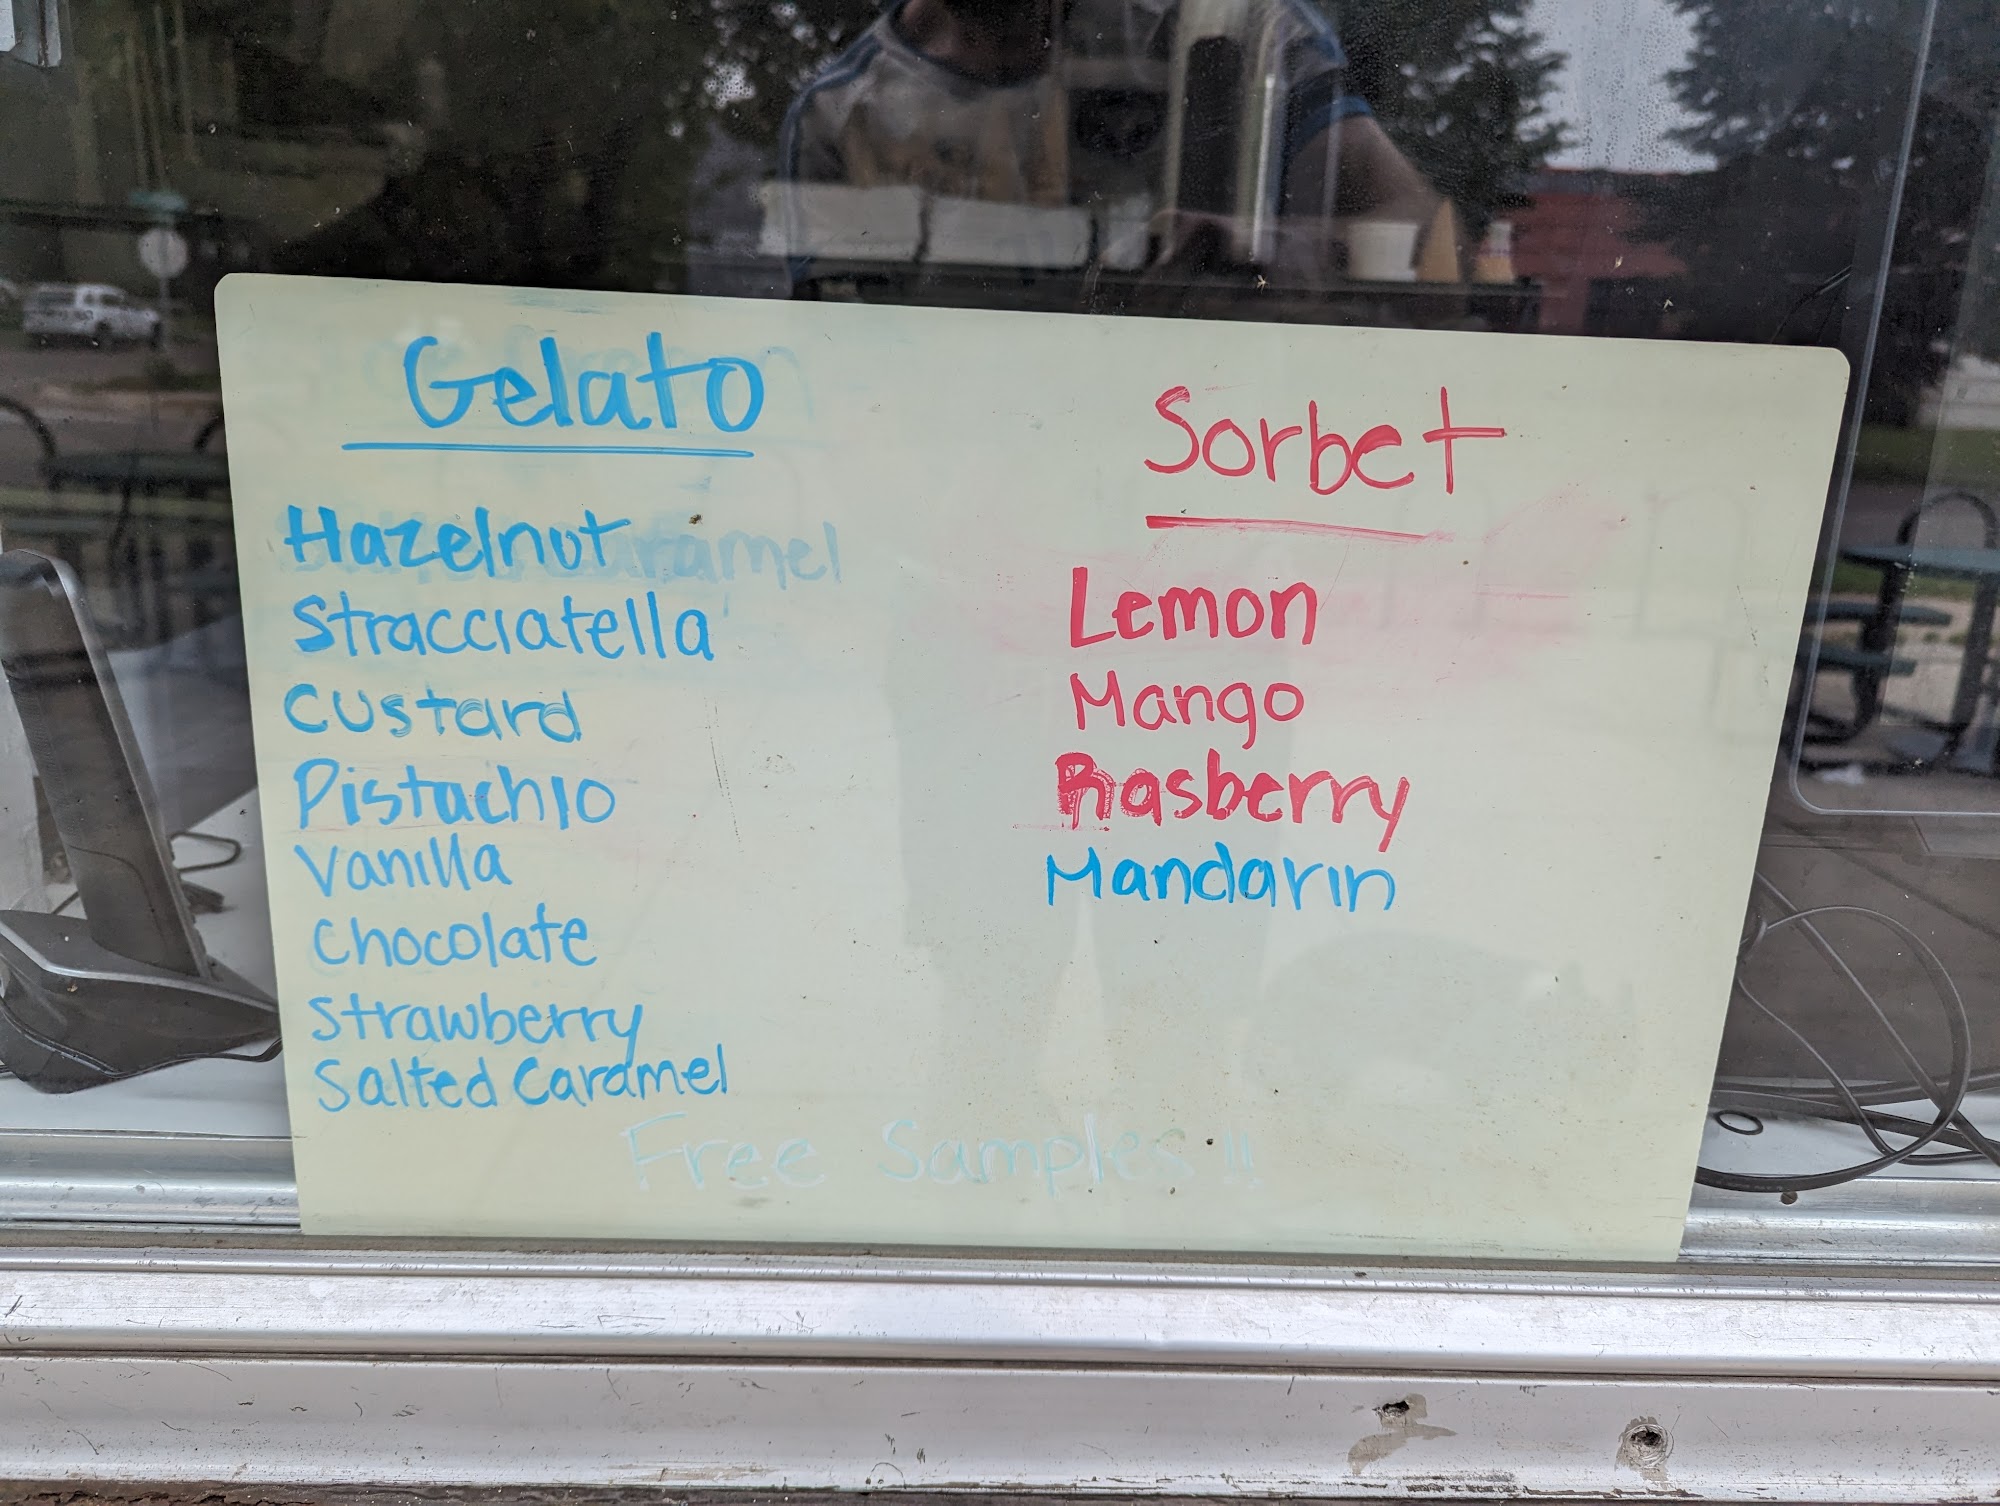 Gelato
Hazelnut
Stracciatella
Custard
Pistachio
Vanilla
Chocolate
Strawberry
Salted Caramel
Sorbet
Lemon
Mango
Rasberry
Mandarin
Free Samples!!